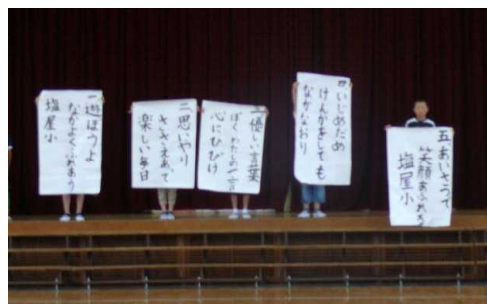 一、遊ぼうよ
なかよくふれあう
塩屋小
二、思いやり
ささえあって
楽しい毎日
三、優しい言葉
ぼくわたしの一言
心にひびけ
四、いじめだめ
けんかをしても
なかなおり
五、あいさつで
笑顔あふれる
塩屋小